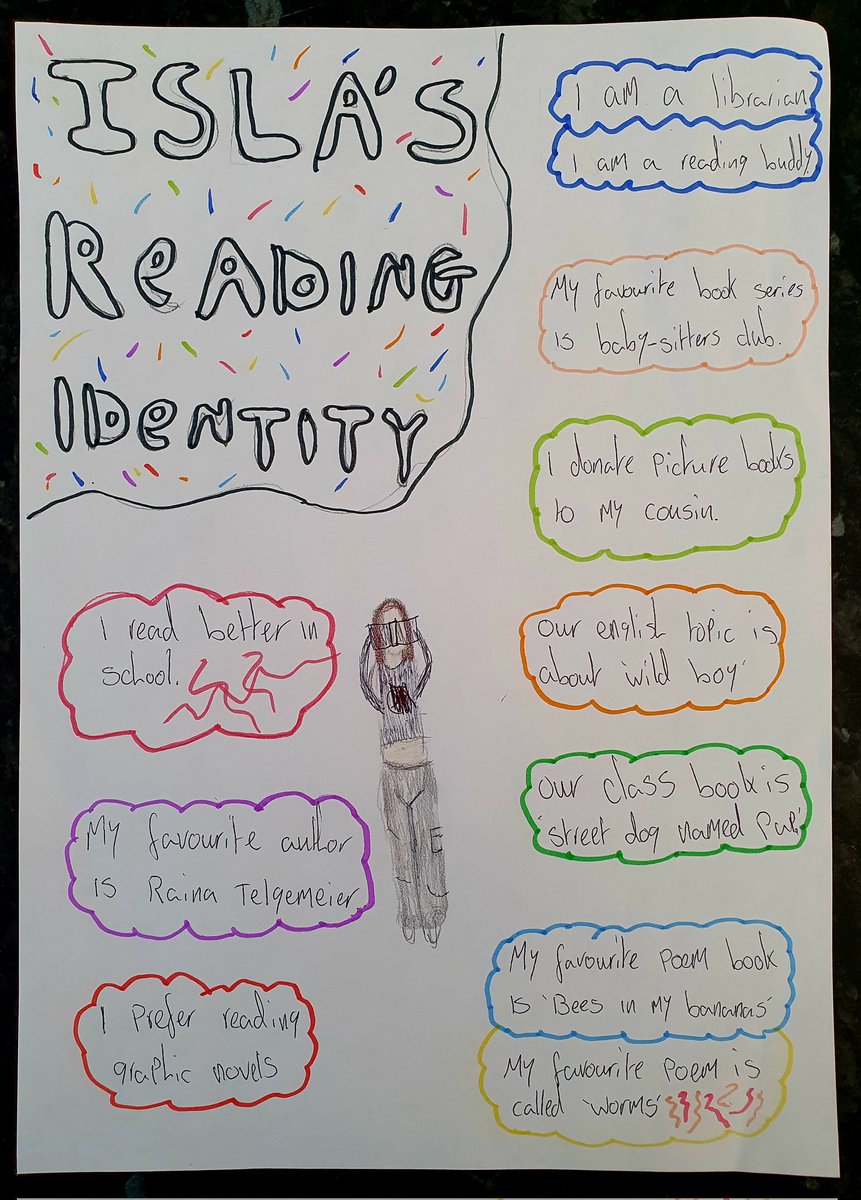 ISLA'S
READING
IDENTITY
I am a librarian
I am a reading buddy.
My favourite book series
is baby-sitters club.
I donate picture books
to my cousin.
I read better in
school.
our english topic is
about 'wild boy'
our class book is
'street dog named Pup'
My favourite author
is Raina Telgemeier
My favourite poem book
is 'Bees in my bananas'
I prefer reading
graphic novels
My favourite poem is
called 'worms'